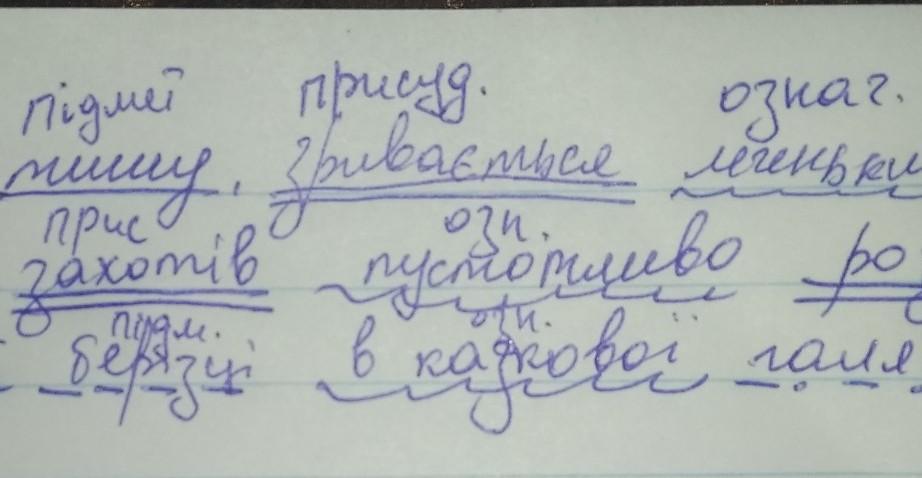 підмет присуд. означ.
тишу, зривається легеньки
прис озн.
захотів пустотливо ро
підм. озн.
берізці в казкової галя